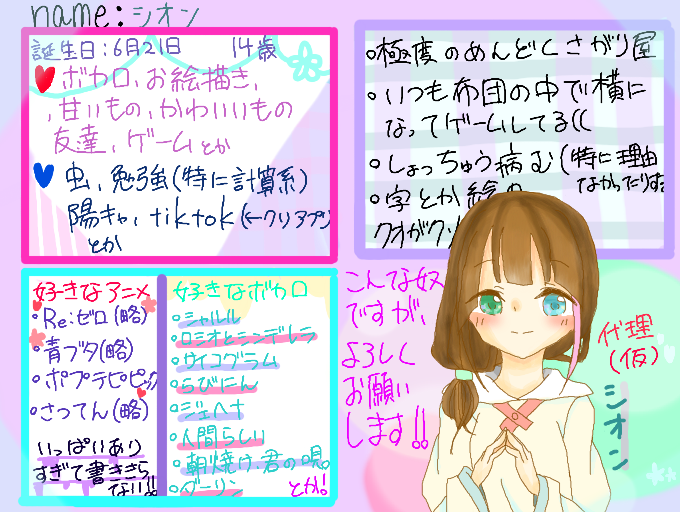 name:シオン
誕生日:6月21日 14歳
ボカロ、お絵描き、
、甘いもの、かわいいもの
友達、ゲームとか
虫、勉強(特に計算系)
陽キャ、tiktok(←クソアプリ
とか
○極度のめんどくさがり屋
○いつも布団の中で横に
なってゲームしてる((
○しょっちゅう病む(特に理由
なかったりする
○字とか絵の
クオがクソ
好きなアニメ
○Re:ゼロ(略)
○青ブタ(略)
○ポプテピピック
○さつてん(略)
いっぱいあり
すぎて書ききら
ない!!
好きなボカロ
○シャルル
○ロミオとシンデレラ
○サイコグラム
○らびにん
○ジェヘナ
○人間らしい
○朝焼け、君の唄。
○ダーリン
とか!
こんな奴
ですが、
よろしく
お願い
します!!
代理
(仮)
シオン